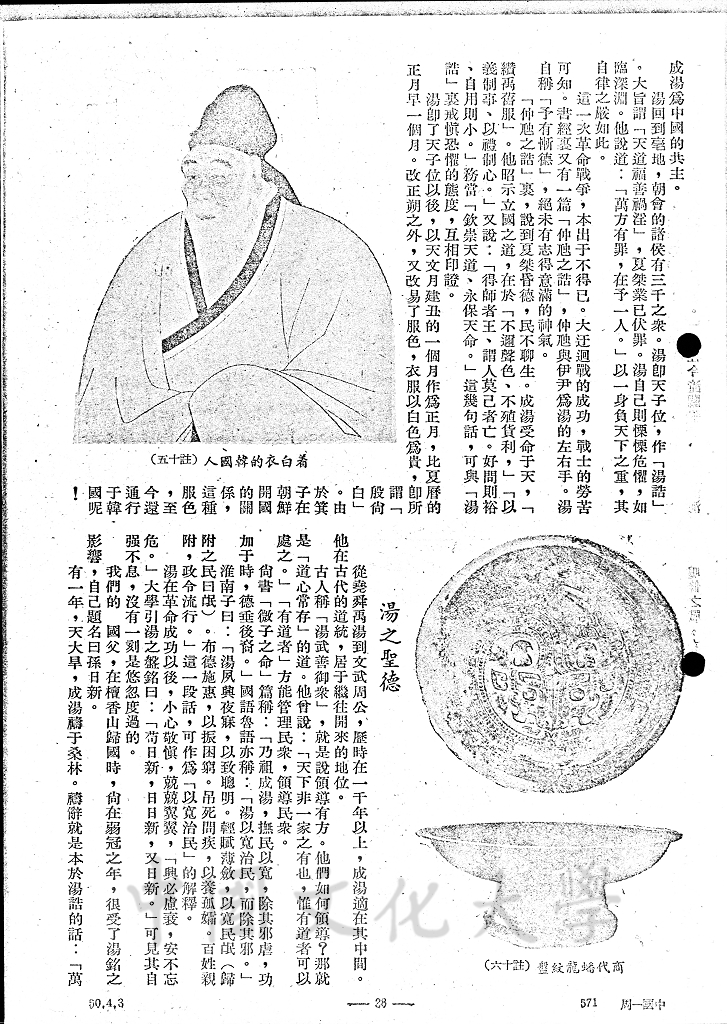 成湯爲中國的共主。
湯回到亳地,朝會的諸侯有三千之衆。湯卽天子位,作「湯誥」
。大旨謂「天道福善禍淫」,夏桀業已伏罪。湯自己則慄慄危懼,如
臨深淵。他說道:「萬方有罪,在予一人。」以一身負天下之重,其
自律之嚴如此。
這一次革命戰爭,本出于不得已。大迂迴戰的成功,戰士的勞苦
可知。書經裏又有一篇「仲虺之誥」,仲虺與伊尹爲湯的左右手。湯
自稱「予有慚德」,絕未有志得意滿的神氣。
「仲虺之誥」裏,說到夏桀昏德,民不聊生。成湯受命于天,「
纘禹舊服」。他昭示立國之道,在於「不邇聲色、不殖貨利,」「以
義制事、以禮制心。」又說:「得師者王、謂人莫己者亡。好問則裕
、自用則小。」務當「欽崇天道、永保天命。」這幾句話,可與「湯
誥」裏戒愼恐懼的態度,互相印證。
湯卽了天子位以後,以天文月建丑的一個月作爲正月,比夏曆的
正月早一個月。改正朔之外,又改易了服色,衣服以白色爲貴,卽所
謂「
殷尙
白」
。由
於箕
子在
朝鮮
開國
的關
係,
這種
服色
,至
今還
通行
于韓
國呢
!
着白衣的韓國人(註十五)
商代蟠龍紋盤(註十六)
湯之聖德
從堯舜禹湯到文武周公,歷時在一千年以上,成湯適在其中間。
他在古代的道統,居于繼往開來的地位。
古人稱「湯武善御衆」,就是說領導有方。他們如何領導?那就
是「道心常存」的道。他曾說:「天下非一家之有也,惟有道者可以
處之。」「有道者」方能管理民衆,領導民衆。
尙書「微子之命」篇稱:「乃祖成湯,撫民以寬,除其邪虐,功
加于時,德垂後裔。」國語魯語亦稱:「湯以寬治民,而除其邪。」
淮南子曰:「湯夙興夜寐,以致聰明。輕賦薄斂,以寬民氓(歸
附之民曰氓)。布德施惠,以振困窮。吊死問疾,以養孤孀。百姓親
附,政令流行。」這一段話,可作爲「以寬治民」的解釋。
湯在革命成功以後,小心敬愼,兢兢翼翼,「興必慮衰,安不忘
危。」大學引湯之盤銘曰:「苟日新,日日新,又日新。」可見其自
强不息,沒有一刻是悠忽度過的。
我們的 國父,在檀香山歸國時,尙在弱冠之年,很受了湯銘之
影響,自己題名曰孫日新。
有一年,天大旱,成湯禱于桑林。禱辭就是本於湯誥的話:「萬
中國文化大學
中國一周
571
— 26 —
50,4,3